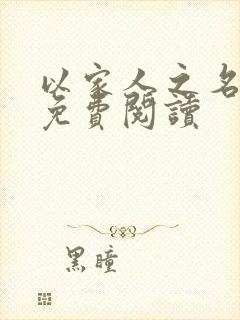 以家人之名
免費閱讀
黑瞳